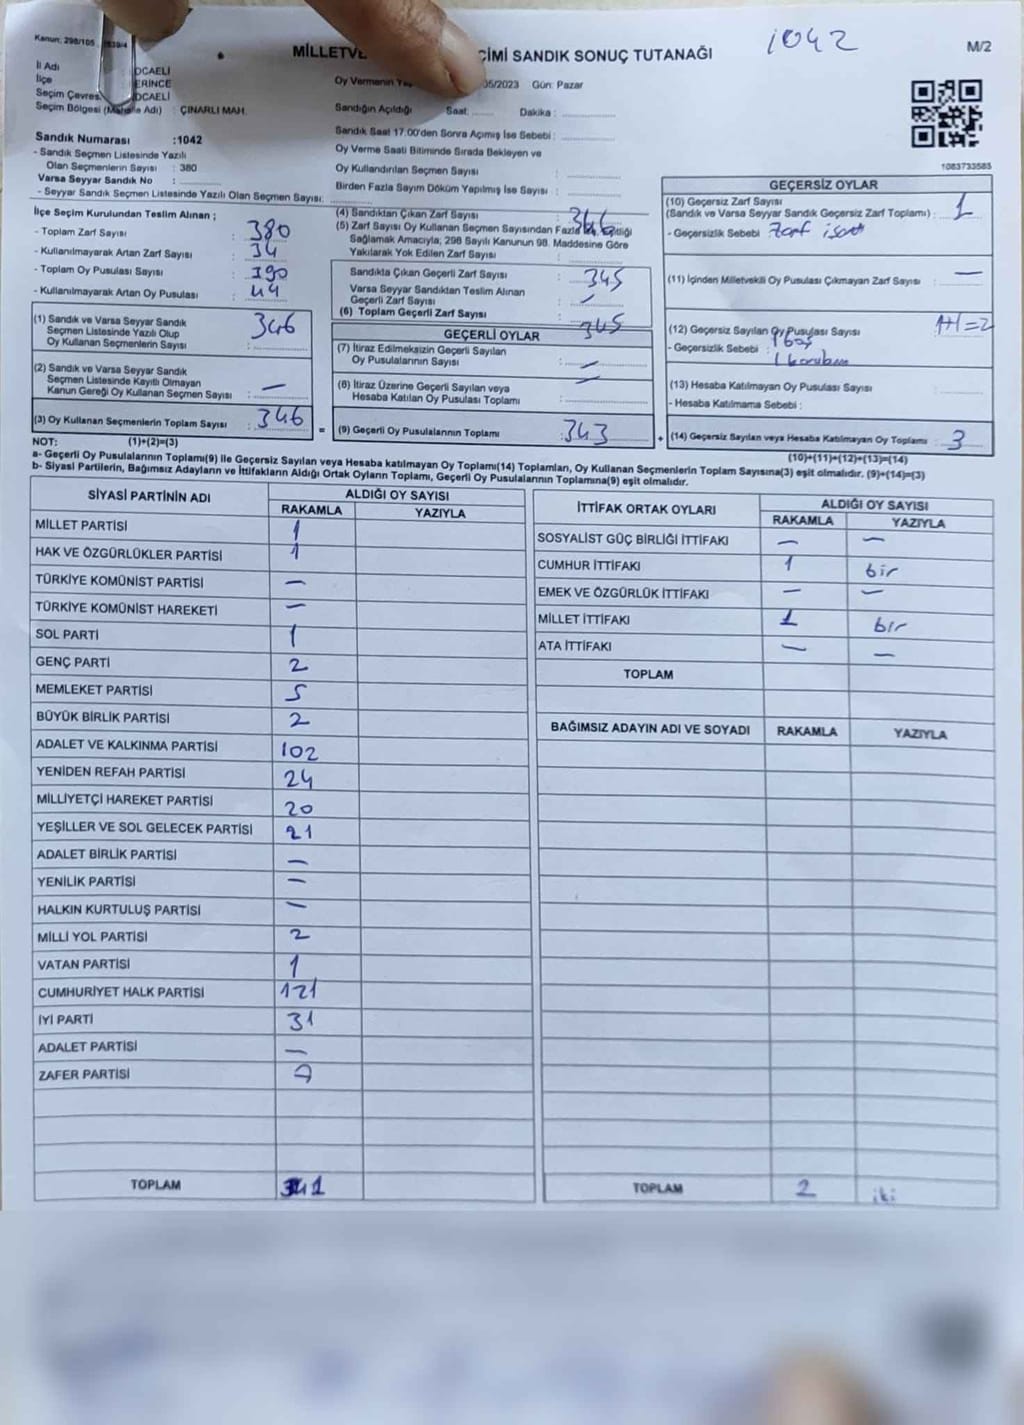 Kanun: 298/105
MİLLETVE
ÇİMİ SANDIK SONUÇ TUTANAĞI
1042
M/2
İl Adı OCAELİ
İlçe ERİNCE
Seçim Çevres OCAELİ
Seçim Bölgesi (Mahalle Adı) : ÇINARLI MAH.
Oy Vermenin 05/2023 Gün: Pazar
Sandığın Açıldığı Saat: Dakika :
Sandık Saat 17.00'den Sonra Açımış İse Sebebi :
Oy Verme Saati Bitiminde Sırada Bekleyen ve
Oy Kullandırılan Seçmen Sayısı :
Birden Fazla Sayım Döküm Yapılmış İse Sayısı :
1083733585
Sandık Numarası :1042
- Sandık Seçmen Listesinde Yazılı
Olan Seçmenlerin Sayısı : 380
Varsa Seyyar Sandık No :
- Seyyar Sandık Seçmen Listesinde Yazılı Olan Seçmen Sayısı:
İlçe Seçim Kurulundan Teslim Alınan ;
- Toplam Zarf Sayısı : 380
- Kullanılmayarak Artan Zarf Sayısı : 34
- Toplam Oy Pusulası Sayısı : 390
- Kullanılmayarak Artan Oy Pusulası : 44
(1) Sandık ve Varsa Seyyar Sandık
Seçmen Listesinde Yazılı Olup
Oy Kullanan Seçmenlerin Sayısı : 346
(2) Sandık ve Varsa Seyyar Sandık
Seçmen Listesinde Kayıtlı Olmayan
Kanun Gereği Oy Kullanan Seçmen Sayısı : —
(3) Oy Kullanan Seçmenlerin Toplam Sayısı : 346
(4) Sandıktan Çıkan Zarf Sayısı : 346
(5) Zarf Sayısı Oy Kullanan Seçmen Sayısından Fazla
Sağlamak Amacıyla; 298 Sayılı Kanunun 98. Maddesine Göre
Yakılarak Yok Edilen Zarf Sayısı :
Sandıkta Çıkan Geçerli Zarf Sayısı : 345
Varsa Seyyar Sandıktan Teslim Alınan
Geçerli Zarf Sayısı : —
(6) Toplam Geçerli Zarf Sayısı : 345
GEÇERLİ OYLAR
(7) İtiraz Edilmeksizin Geçerli Sayılan
Oy Pusulalarının Sayısı : —
(8) İtiraz Üzerine Geçerli Sayılan veya
Hesaba Katılan Oy Pusulası Toplamı : —
= (9) Geçerli Oy Pusulalarının Toplamı : 343
GEÇERSİZ OYLAR
(10) Geçersiz Zarf Sayısı
(Sandık ve Varsa Seyyar Sandık Geçersiz Zarf Toplamı) : 1
- Geçersizlik Sebebi : Zarf
(11) İçinden Milletvekili Oy Pusulası Çıkmayan Zarf Sayısı : —
(12) Geçersiz Sayılan Oy Pusulası Sayısı : 1+1=2
- Geçersizlik Sebebi : 1 boş
(13) Hesaba Katılmayan Oy Pusulası Sayısı
- Hesaba Katılmama Sebebi :
+ (14) Geçersiz Sayılan veya Hesaba Katılmayan Oy Toplamı : 3
NOT: (1)+(2)=(3)
(10)+(11)+(12)+(13)=(14)
a- Geçerli Oy Pusulalarının Toplamı(9) ile Geçersiz Sayılan veya Hesaba katılmayan Oy Toplamı(14) Toplamları, Oy Kullanan Seçmenlerin Toplam Sayısına(3) eşit olmalıdır. (9)+(14)=(3)
b- Siyasi Partilerin, Bağımsız Adayların ve İttifakların Aldığı Ortak Oyların Toplamı, Geçerli Oy Pusulalarının Toplamına(9) eşit olmalıdır.
SİYASİ PARTİNİN ADI
ALDIĞI OY SAYISI
RAKAMLA YAZIYLA
MİLLET PARTİSİ 1
HAK VE ÖZGÜRLÜKLER PARTİSİ 1
TÜRKİYE KOMÜNİST PARTİSİ —
TÜRKİYE KOMÜNİST HAREKETİ —
SOL PARTİ 1
GENÇ PARTİ 2
MEMLEKET PARTİSİ 5
BÜYÜK BİRLİK PARTİSİ 2
ADALET VE KALKINMA PARTİSİ 102
YENİDEN REFAH PARTİSİ 24
MİLLİYETÇİ HAREKET PARTİSİ 20
YEŞİLLER VE SOL GELECEK PARTİSİ 21
ADALET BİRLİK PARTİSİ —
YENİLİK PARTİSİ —
HALKIN KURTULUŞ PARTİSİ —
MİLLİ YOL PARTİSİ 2
VATAN PARTİSİ 1
CUMHURİYET HALK PARTİSİ 121
İYİ PARTİ 31
ADALET PARTİSİ —
ZAFER PARTİSİ 7
TOPLAM 341
İTTİFAK ORTAK OYLARI
ALDIĞI OY SAYISI
RAKAMLA YAZIYLA
SOSYALİST GÜÇ BİRLİĞİ İTTİFAKI — —
CUMHUR İTTİFAKI 1 bir
EMEK VE ÖZGÜRLÜK İTTİFAKI — —
MİLLET İTTİFAKI 1 bir
ATA İTTİFAKI — —
TOPLAM
BAĞIMSIZ ADAYIN ADI VE SOYADI RAKAMLA YAZIYLA
TOPLAM 2 iki